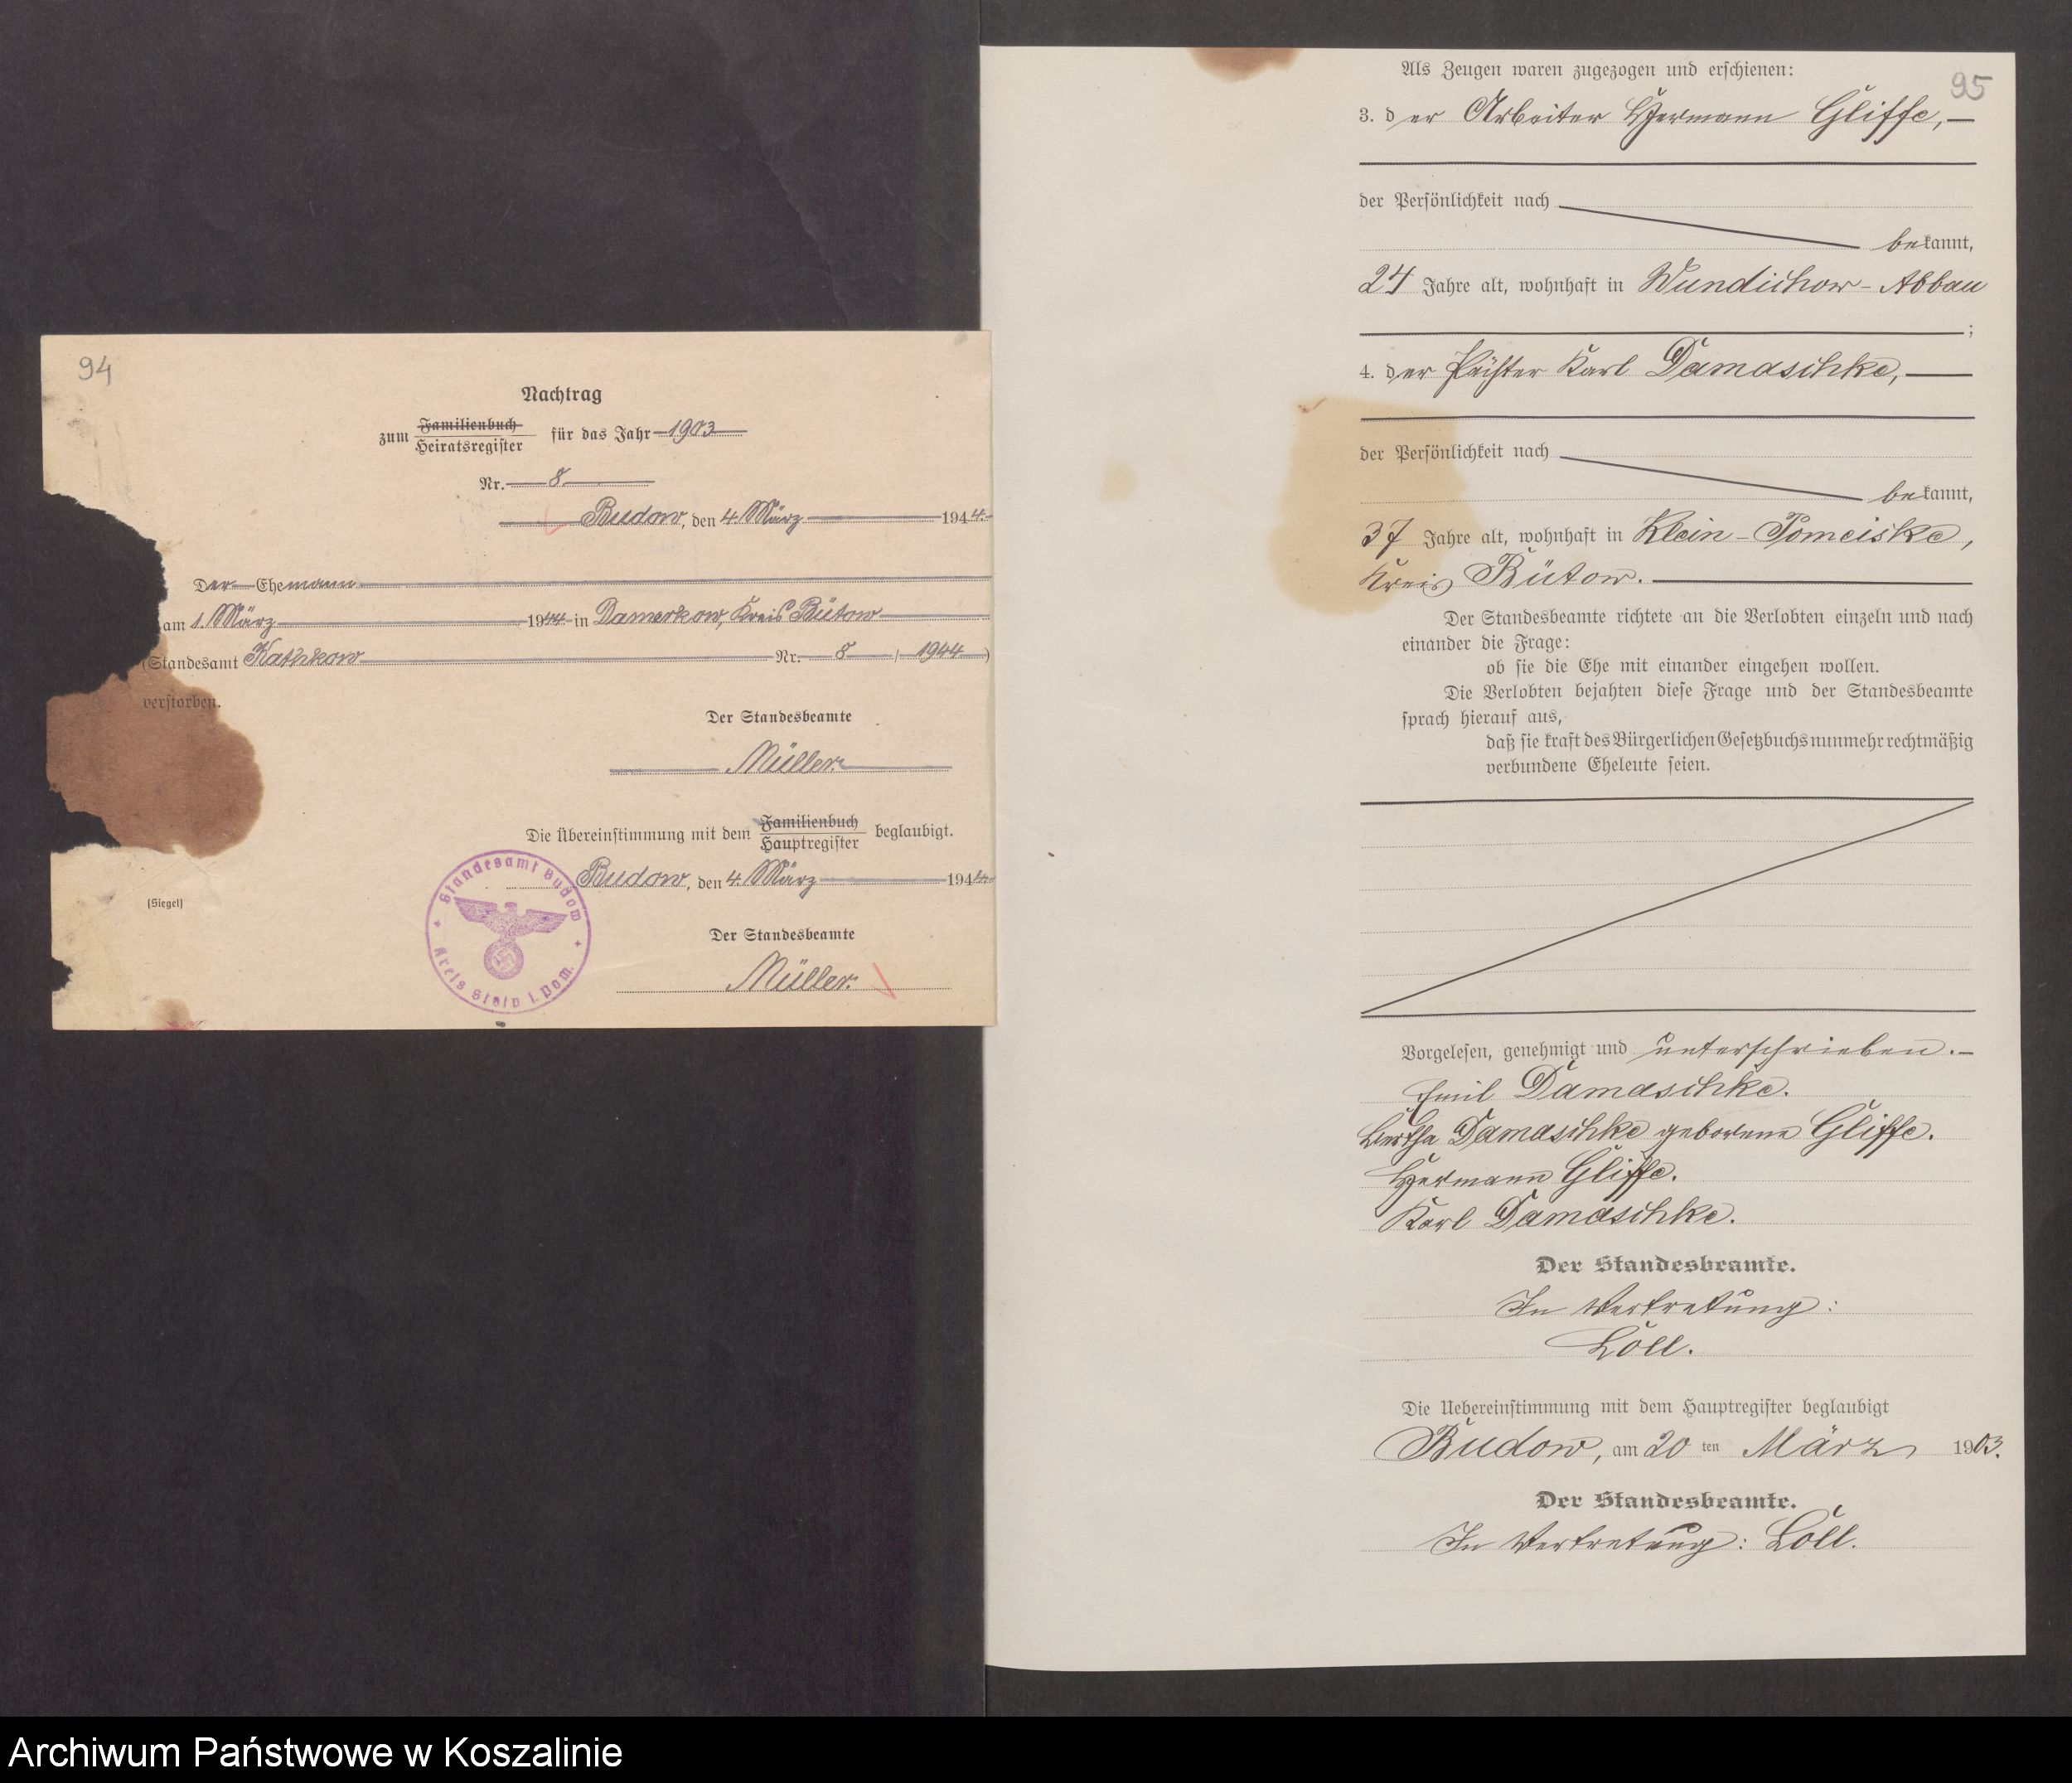 94
Nachtrag
zum Familienbuch
Heiratsregister für das Jahr 1903
Nr. 8
Budow, den 4. März 1944.
Der Ehemann
am 1. März 1944 in Damerkow, Kreis Bütow
(Standesamt Kathkow Nr. 8 / 1944)
verstorben.
Der Standesbeamte
Müller.
Die Übereinstimmung mit dem Familienbuch
Hauptregister beglaubigt.
Budow, den 4. März 1944.
(Siegel)
Standesamt Budow
Kreis Stolp i. Pom.
Der Standesbeamte
Müller.
95
Als Zeugen waren zugezogen und erschienen:
3. der Arbeiter Hermann Gliffe,
der Persönlichkeit nach
bekannt,
24 Jahre alt, wohnhaft in Wundichow-Abbau
;
4. der Pächter Karl Damaschke,
der Persönlichkeit nach
bekannt,
37 Jahre alt, wohnhaft in Klein-Pomeiske,
Kreis Bütow.
Der Standesbeamte richtete an die Verlobten einzeln und nach
einander die Frage:
ob sie die Ehe mit einander eingehen wollen.
Die Verlobten bejahten diese Frage und der Standesbeamte
sprach hierauf aus,
daß sie kraft des Bürgerlichen Gesetzbuchs nunmehr rechtmäßig
verbundene Eheleute seien.
Vorgelesen, genehmigt und unterschrieben.
Emil Damaschke.
Bertha Damaschke geborene Gliffe.
Hermann Gliffe.
Karl Damaschke.
Der Standesbeamte.
In Vertretung:
Löll.
Die Uebereinstimmung mit dem Hauptregister beglaubigt
Budow, am 20ten März 1903.
Der Standesbeamte.
In Vertretung: Löll.
Archiwum Państwowe w Koszalinie